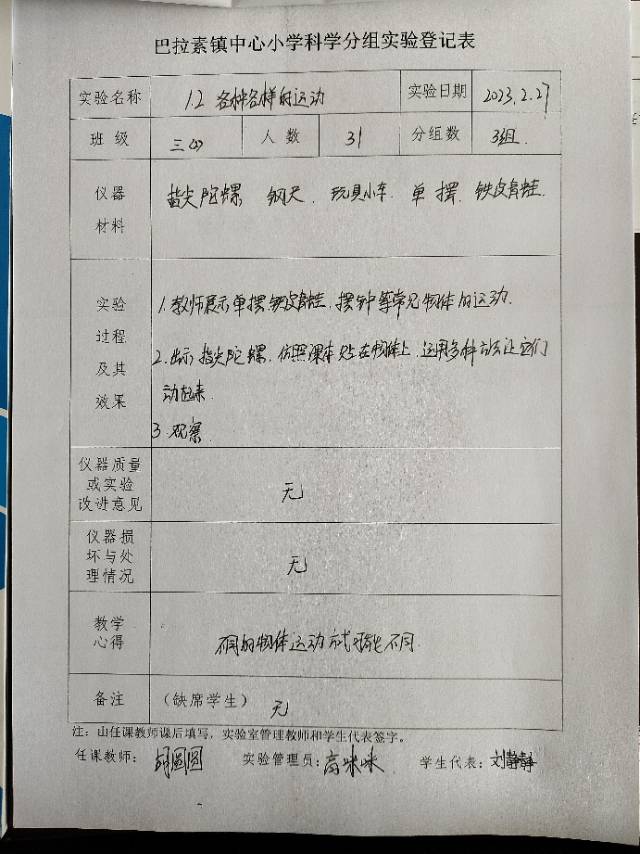 巴拉素镇中心小学科学分组实验登记表
实验名称 1.2 各种各样的运动 实验日期 2023.2.27
班级 三(4) 人数 31 分组数 3组
仪器材料 指尖陀螺 钢尺 玩具小车 单摆 铁皮青蛙
实验过程及其效果 1.教师展示单摆.铁皮青蛙.摆钟等常见物体的运动.
2.出示指尖陀螺.仿照课本贴在物体上.运用多种方法让它们
动起来
3.观察
仪器质量或实验改进意见 无
仪器损坏与处理情况 无
教学心得 不同的物体运动方式可能不同.
备注 (缺席学生) 无
注：由任课教师课后填写，实验室管理教师和学生代表签字。
任课教师：胡圆圆 实验管理员：高咪咪 学生代表：刘静静